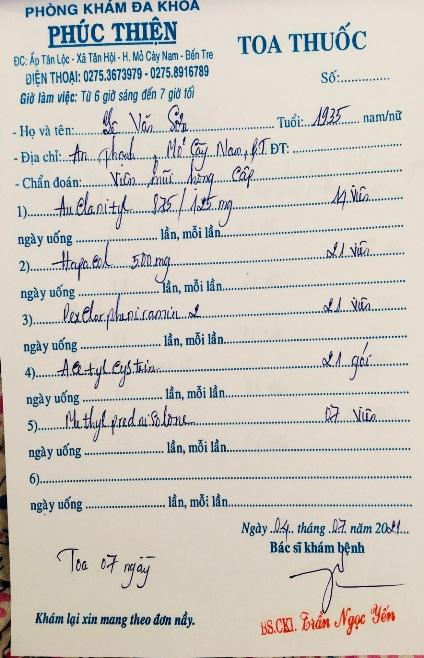 PHÒNG KHÁM ĐA KHOA
PHÚC THIỆN
ĐC: Ấp Tân Lộc - Xã Tân Hội - H. Mỏ Cày Nam - Bến Tre
ĐIỆN THOẠI: 0275.3673979 - 0275.8916789
Giờ làm việc: Từ 6 giờ sáng đến 7 giờ tối
TOA THUỐC
Số:
- Họ và tên: Văn Tuổi: 1935 nam/nữ
- Địa chỉ: An Thạnh, Mỏ Cày Nam, BT ĐT:
- Chẩn đoán: Viêm mũi họng cấp
1) Auclanityl 875/125 mg 14 viên
ngày uống lần, mỗi lần
2) Hapacol 500mg 21 viên
ngày uống lần, mỗi lần
3) Dexclorpheniramin 2 21 viên
ngày uống lần, mỗi lần
4) Acetylcystein 21 gói
ngày uống lần, mỗi lần
5) Methylprednisolone 07 viên
ngày uống lần, mỗi lần
6)
ngày uống lần, mỗi lần
Ngày 04 tháng 07 năm 2021
Bác sĩ khám bệnh
Toa 07 ngày
Khám lại xin mang theo đơn nầy.
BS.CKI. Trần Ngọc Yến